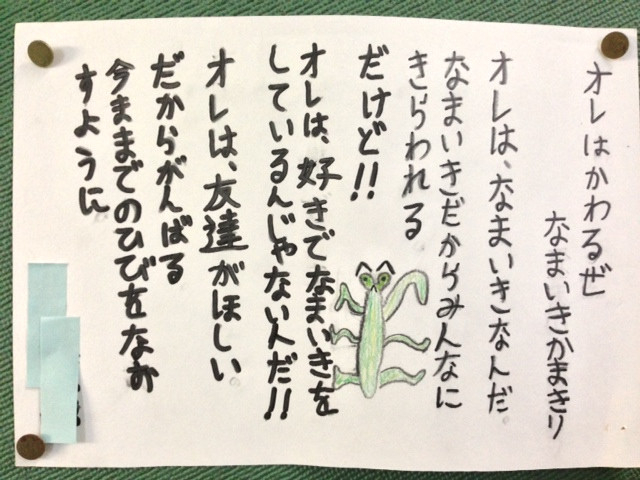 オレはかわるぜ
なまいきかまきり
オレは、なまいきなんだ。
なまいきだからみんなに
きらわれる
だけど!!
オレは、好きでなまいきを
しているんじゃないんだ!!
オレは、友達がほしい。
だからがんばる
今ままでのひびをなお
すように